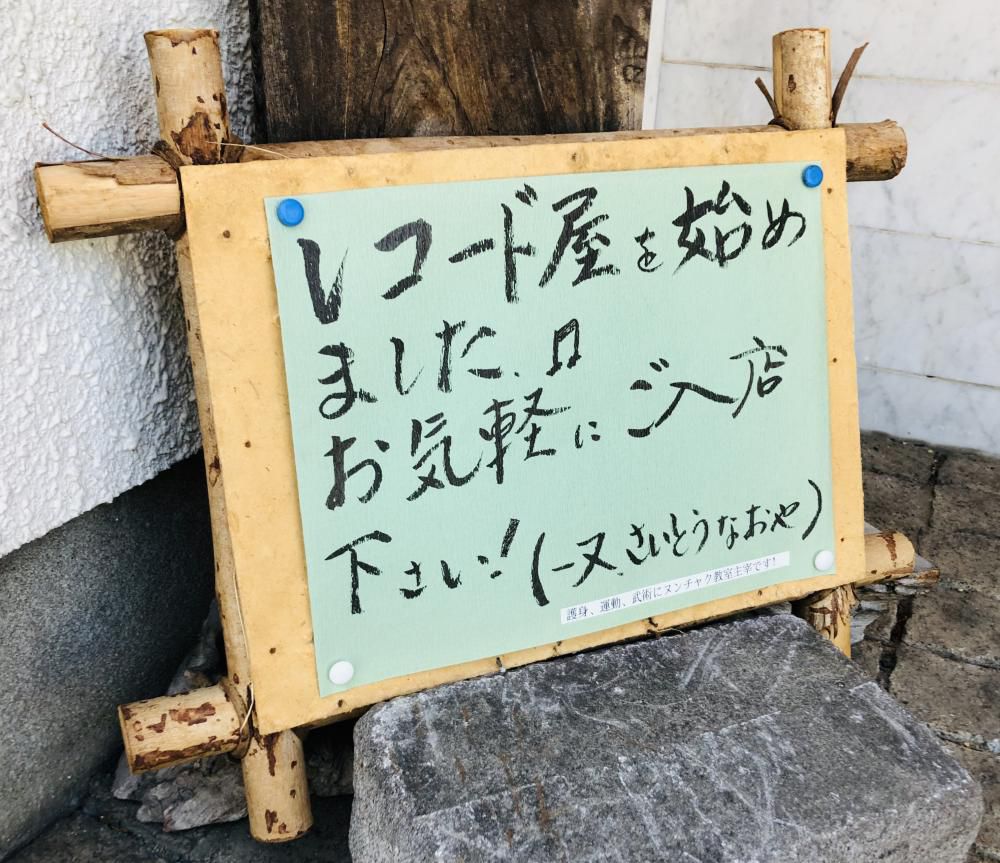 レコード屋を始め
ました、♫
お気軽にご入店
下さい!(一又、さいとうなおや)
護身、運動、武術にヌンチャク教室主宰です!